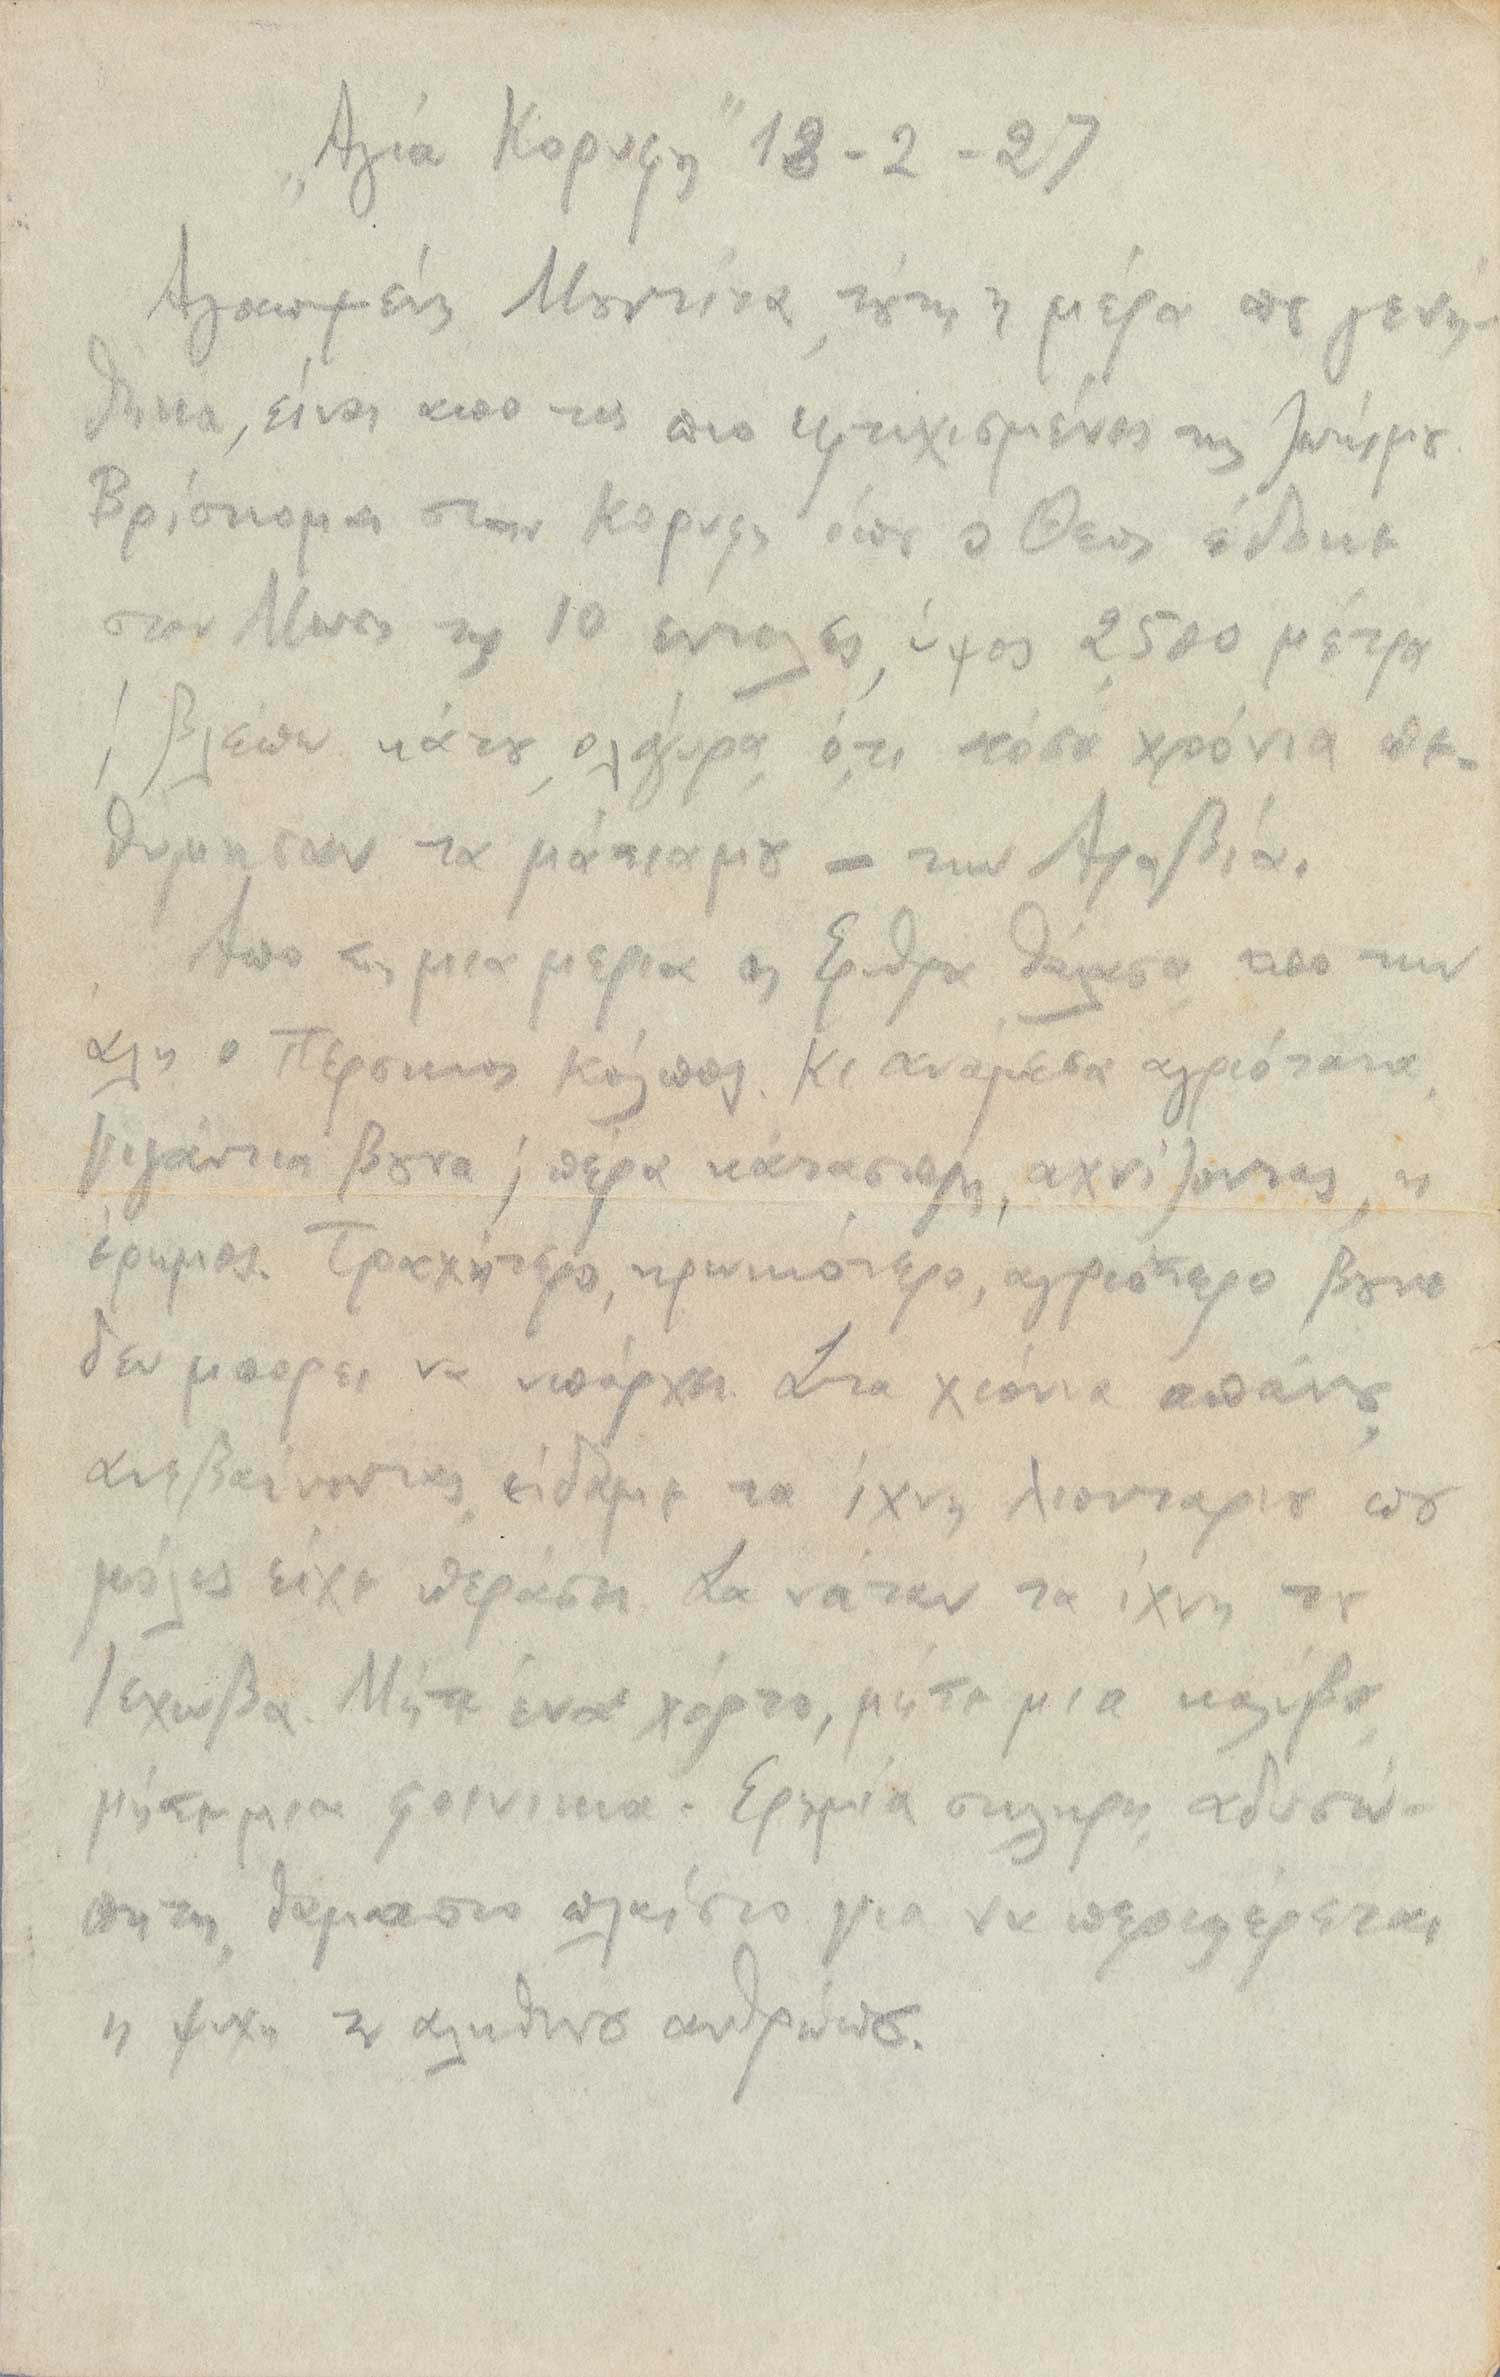 „Αγία Κορυφη" 18-2-27
Αγαπημένη Μουντίτα, τούτη η μέρα που γενή-
θηκα, είναι απο τις πιο εφτιχισμένες της ζωήςμου.
Βρίσκομαι στην Κορυφη όπου ο Θεος έδοκε
στον Μωυση τις 10 εντολες, ύψος 2500 μέτρα
/ βλέπω κάτου, ολόγυρα, ό,τι τόσα χρόνια πε-
θύμησαν τα μάτιαμου – την Αραβία.
Απο τη μια μερια η Εριθρα θάλασα, απο την
άλη ο Περσικος Κόλπος. Κι ανάμεσα αγριότατα,
γιγάντια βουνα / πέρα κάτασπρη, αχνίζοντας, η
έρημος. Τραχήτερο, ηρωικότερο, αγριότερο βουνο
δεν μπορει να υπάρχει. Στα χιόνια απάνου,
ανεβαίνοντας, είδαμε τα ίχνη λιονταριου που
μόλις είχε περάσει. Σα νάταν τα ίχνη του
Ιεχωβα. Μήτε ένα χόρτο, μήτε μια καλύβα,
μήτε μια φοινικια. Ερημία σκληρη, αδυσώ-
πητη, θαμαστο πλαίσιο για να περιφέρεται
η ψυχη του αληθινου ανθρώπου.